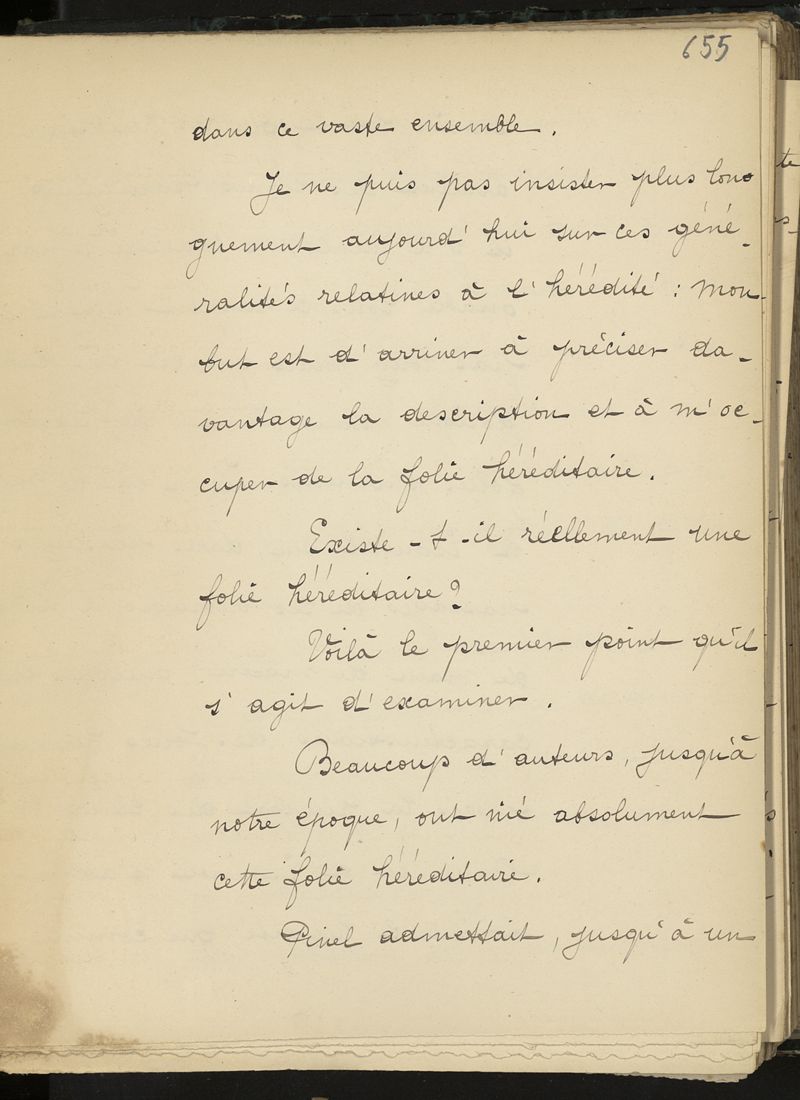 655
dans ce vaste ensemble.
Je ne puis pas insister plus lon-
guement aujourd'hui sur ces géné-
ralités relatives à l'hérédité : mon
but est d'arriver à préciser da-
vantage la description et à m'oc-
cuper de la folie héréditaire.
Existe-t-il réellement une
folie héréditaire ?
Voilà le premier point qu'il
s'agit d'examiner.
Beaucoup d'auteurs, jusqu'à
notre époque, ont nié absolument
cette folie héréditaire.
Pinel admettait, jusqu'à un